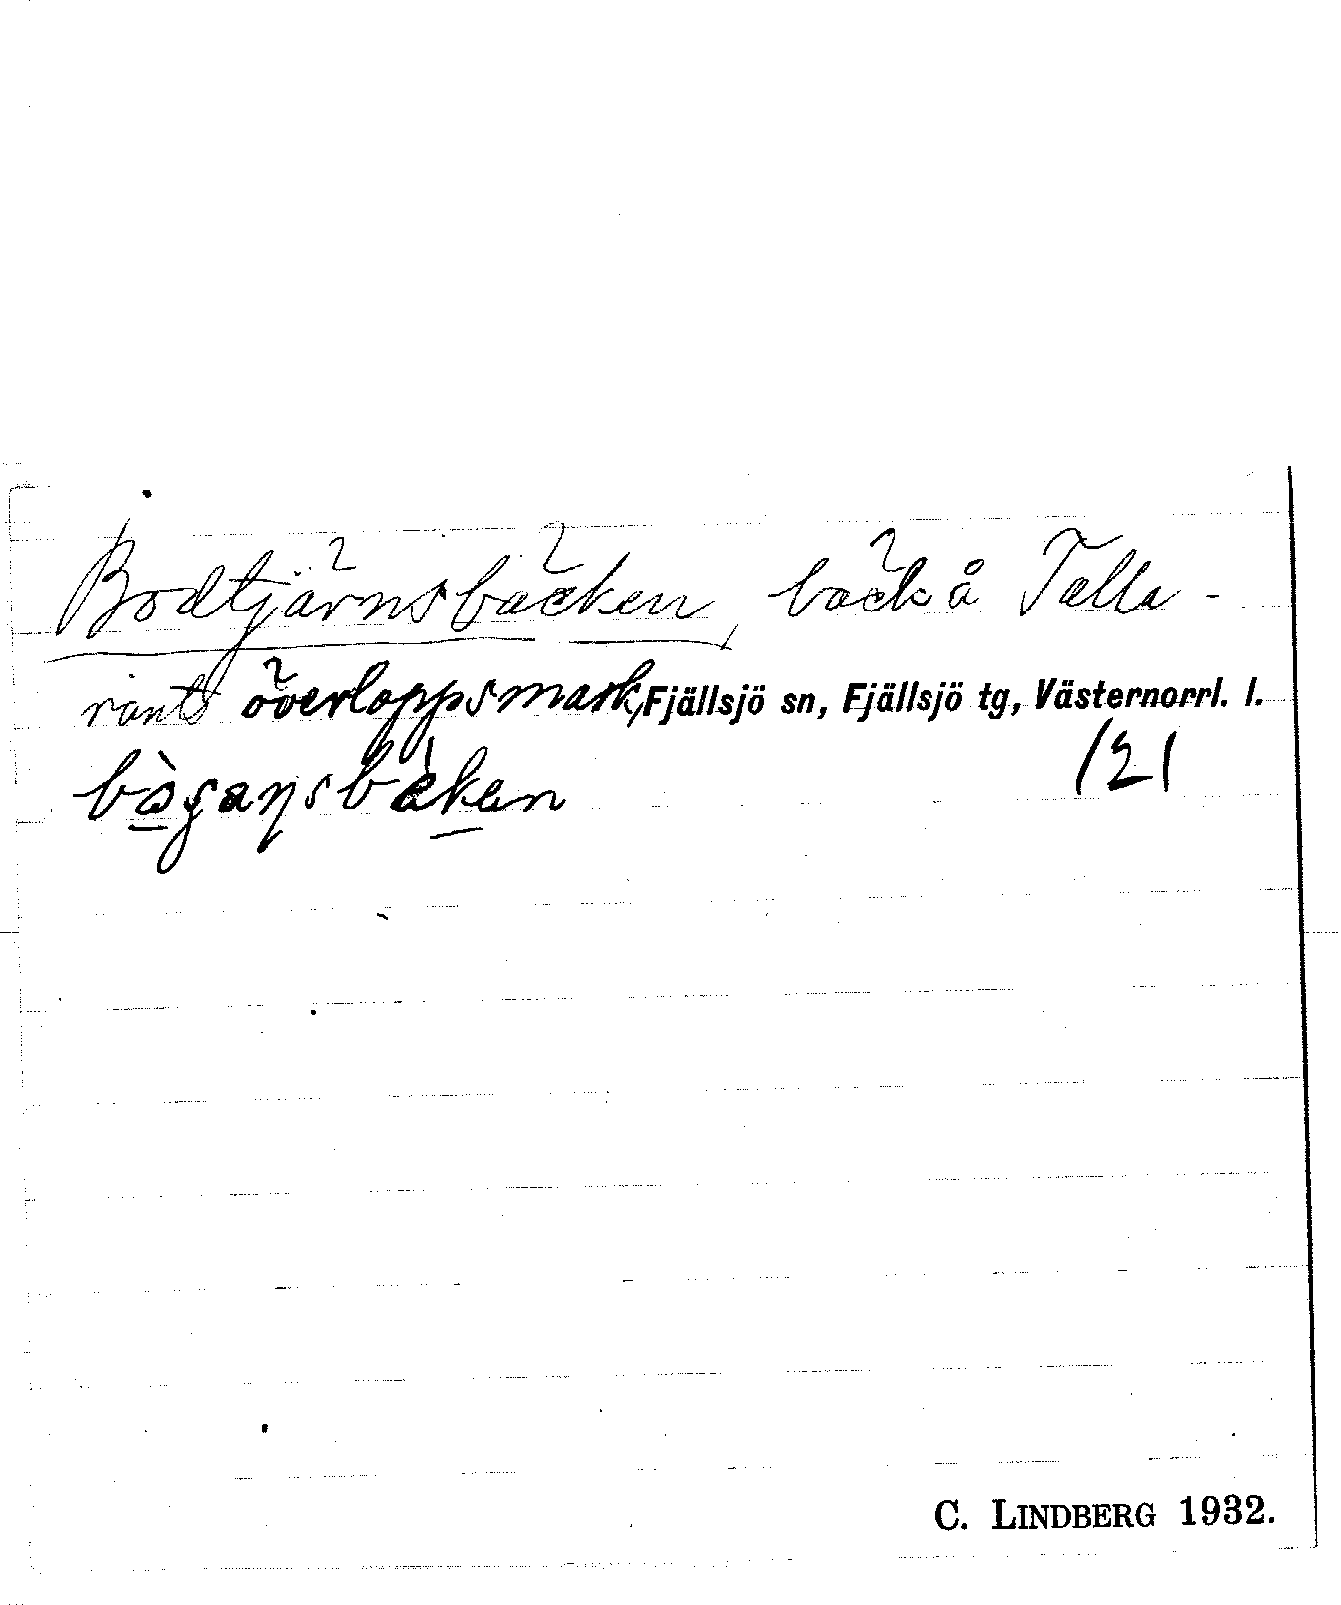 Bodtjärnsbäcken, bäck å Talla-
rönts överloppsmark, Fjällsjö sn, Fjällsjö tg, Västernorrl. l.
121
C. LINDBERG 1932.